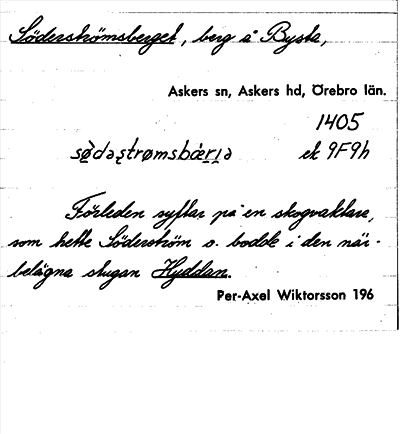 Söderströmsberget, berg å Bysta,
Askers sn, Askers hd, Örebro län.
1405
sø̀dəʂtrømsbær̩jə ek 9F9h
Förleden syftar på en skogvaktare,
som hette Söderström o. bodde i den när-
belägna stugan Hyddan.
Per-Axel Wiktorsson 196